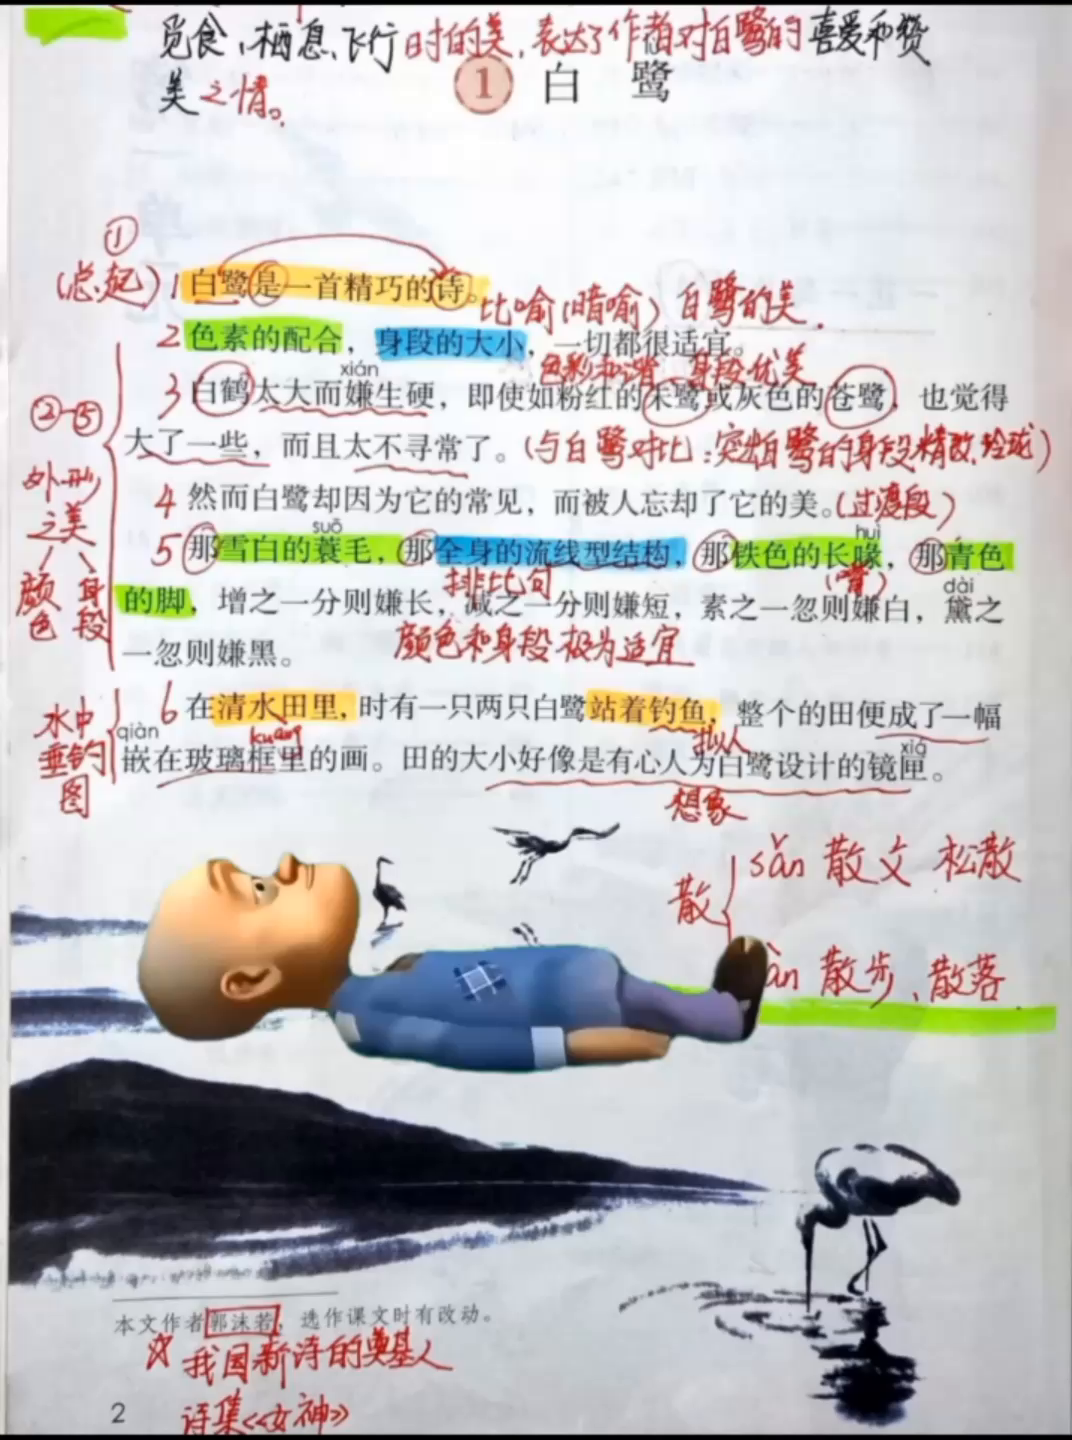 觅食、栖息、飞行时的美，表达了作者对白鹭的喜爱和赞
美之情。
1 白鹭
①
(总起) 1 白鹭是一首精巧的诗。
比喻(暗喻) 白鹭的美.
2 色素的配合，身段的大小，一切都很适宜。
色彩和谐 身段优美
xián
3 白鹤太大而嫌生硬，即使如粉红的朱鹭或灰色的苍鹭，也觉得
②-⑤
大了一些，而且太不寻常了。(与白鹭对比：突出白鹭的身段精致.玲珑)
外形
之美
颜色
身段
4 然而白鹭却因为它的常见，而被人忘却了它的美。(过渡段)
suō
huì
5 那雪白的蓑毛，那全身的流线型结构，那铁色的长喙，那青色
排比句
(嘴)
dài
的脚，增之一分则嫌长，减之一分则嫌短，素之一忽则嫌白，黛之
一忽则嫌黑。
颜色和身段极为适宜
水中
垂钓
图
6 在清水田里，时有一只两只白鹭站着钓鱼，整个的田便成了一幅
qiàn
kuang
拟人
xiá
嵌在玻璃框里的画。田的大小好像是有心人为白鹭设计的镜匣。
想象
散
sǎn 散文 松散
àn 散步、散落
本文作者郭沫若，选作课文时有改动。
☆ 我国新诗的奠基人
诗集《女神》
2